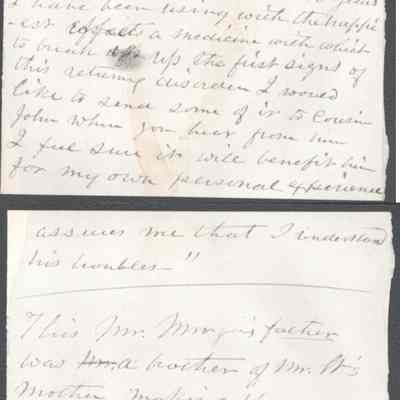 I have been using with the happi
-est effects a medicine with which
to break up the first signs of
this returning disorder I would
like to send some of it to Cousin
John when you hear from him
I feel sure it will benefit him
for my own personal experience
assures me that I understand
his troubles—"
This Mr. Morgin's father
was a brother of Mr. W's
Mother